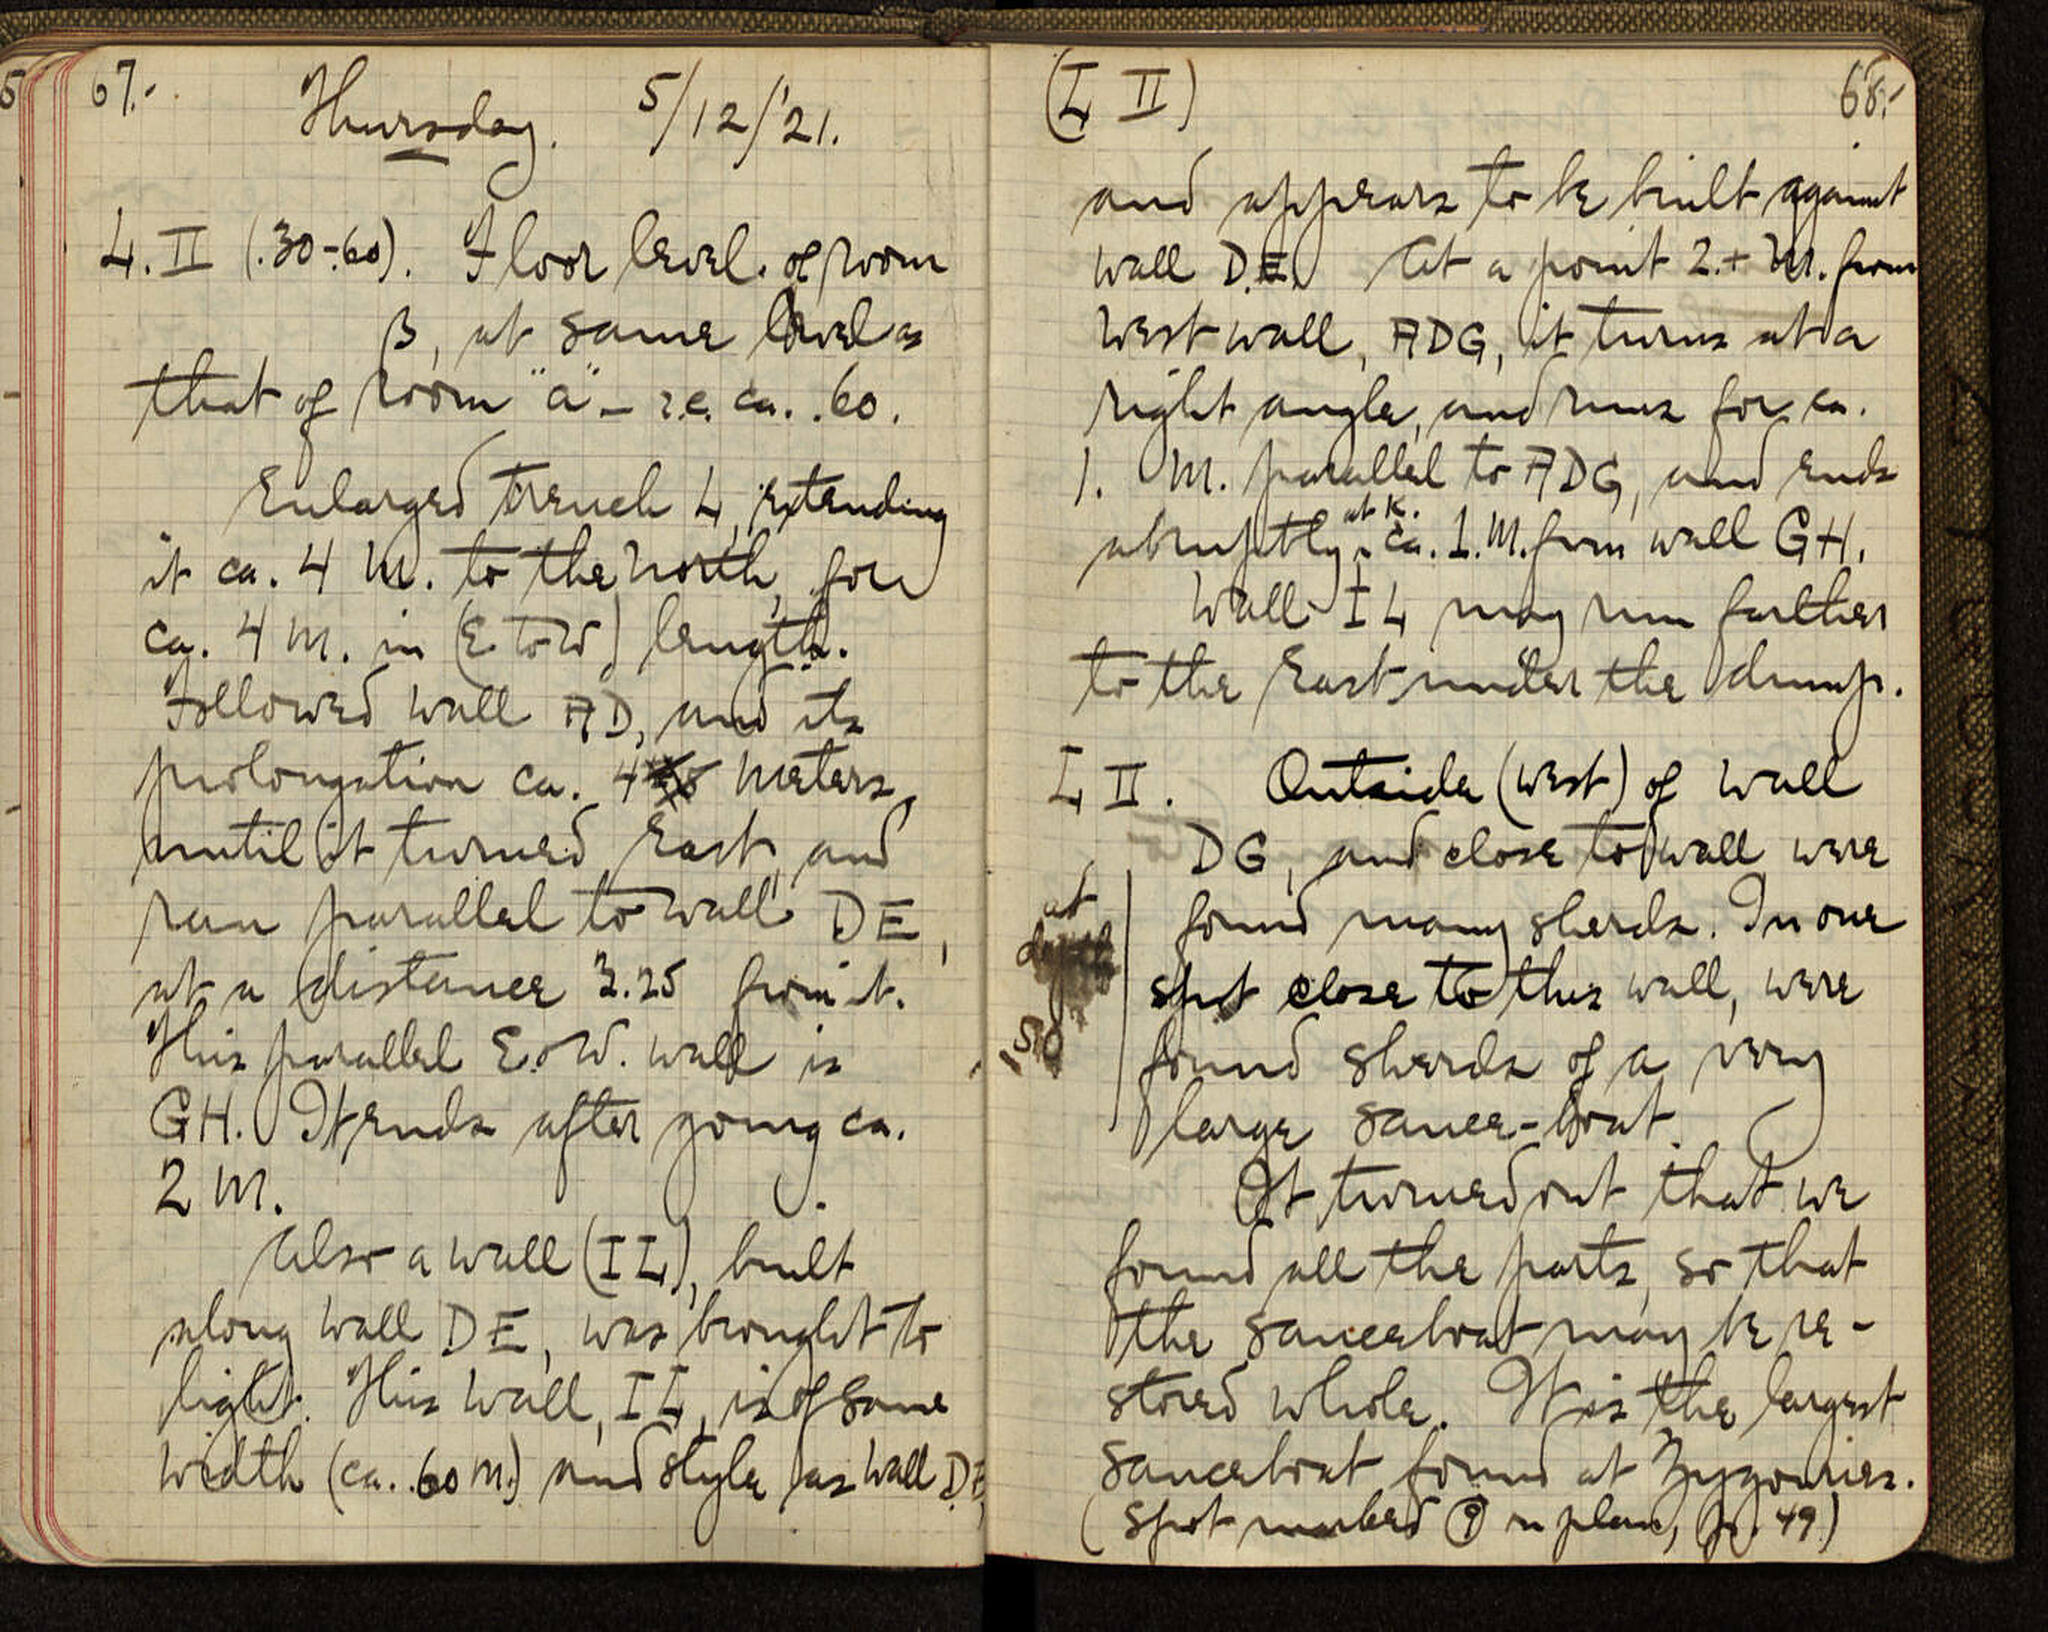 67.-
Thursday. 5/12/'21.
4. II (.30-.60). Floor level of room
β, at same level as
that of room "a" - i.e. ca. .60.
Enlarged trench 4, extending
it ca. 4 m. to the north, for
ca. 4 m. in (E to W) length.
Followed wall AD, and its
prolongation ca. 4 meters,
until it turned East, and
ran parallel to wall DE,
at a distance 3.25 from it.
This parallel E.-W. wall is
GH. It ends after going ca.
2 m.
Also a wall (IL), built
along wall DE, was brought to
light. This wall, IL, is of same
width (ca. .60 m.) and style as wall DE,
(L II) 68.-
and appears to be built against
wall DE. At a point 2.+ m. from
West wall, ADG, it turns at a
right angle, and runs for ca.
1. m. parallel to ADG, and ends
abruptly at K. ca. 1. m. from wall GH.
Wall IL may run farther
to the East under the dump.
L II. Outside (west) of wall
DG, and close to wall were
found many sherds. In one
spot close to this wall, were
found sherds of a very
large sauce-boat.
at
depth
.50
It turned out that we
found all the parts, so that
the sauceboat may be re-
stored whole. It is the largest
sauceboat found at Zygouries.
(Spot marked 9 on plan, p. 49)